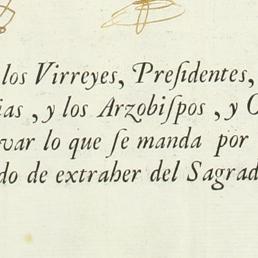 los Virreyes, Preſidentes,
ias, y los Arzobiſpos, y O
var lo que ſe manda por
do de extraher del Sagrad